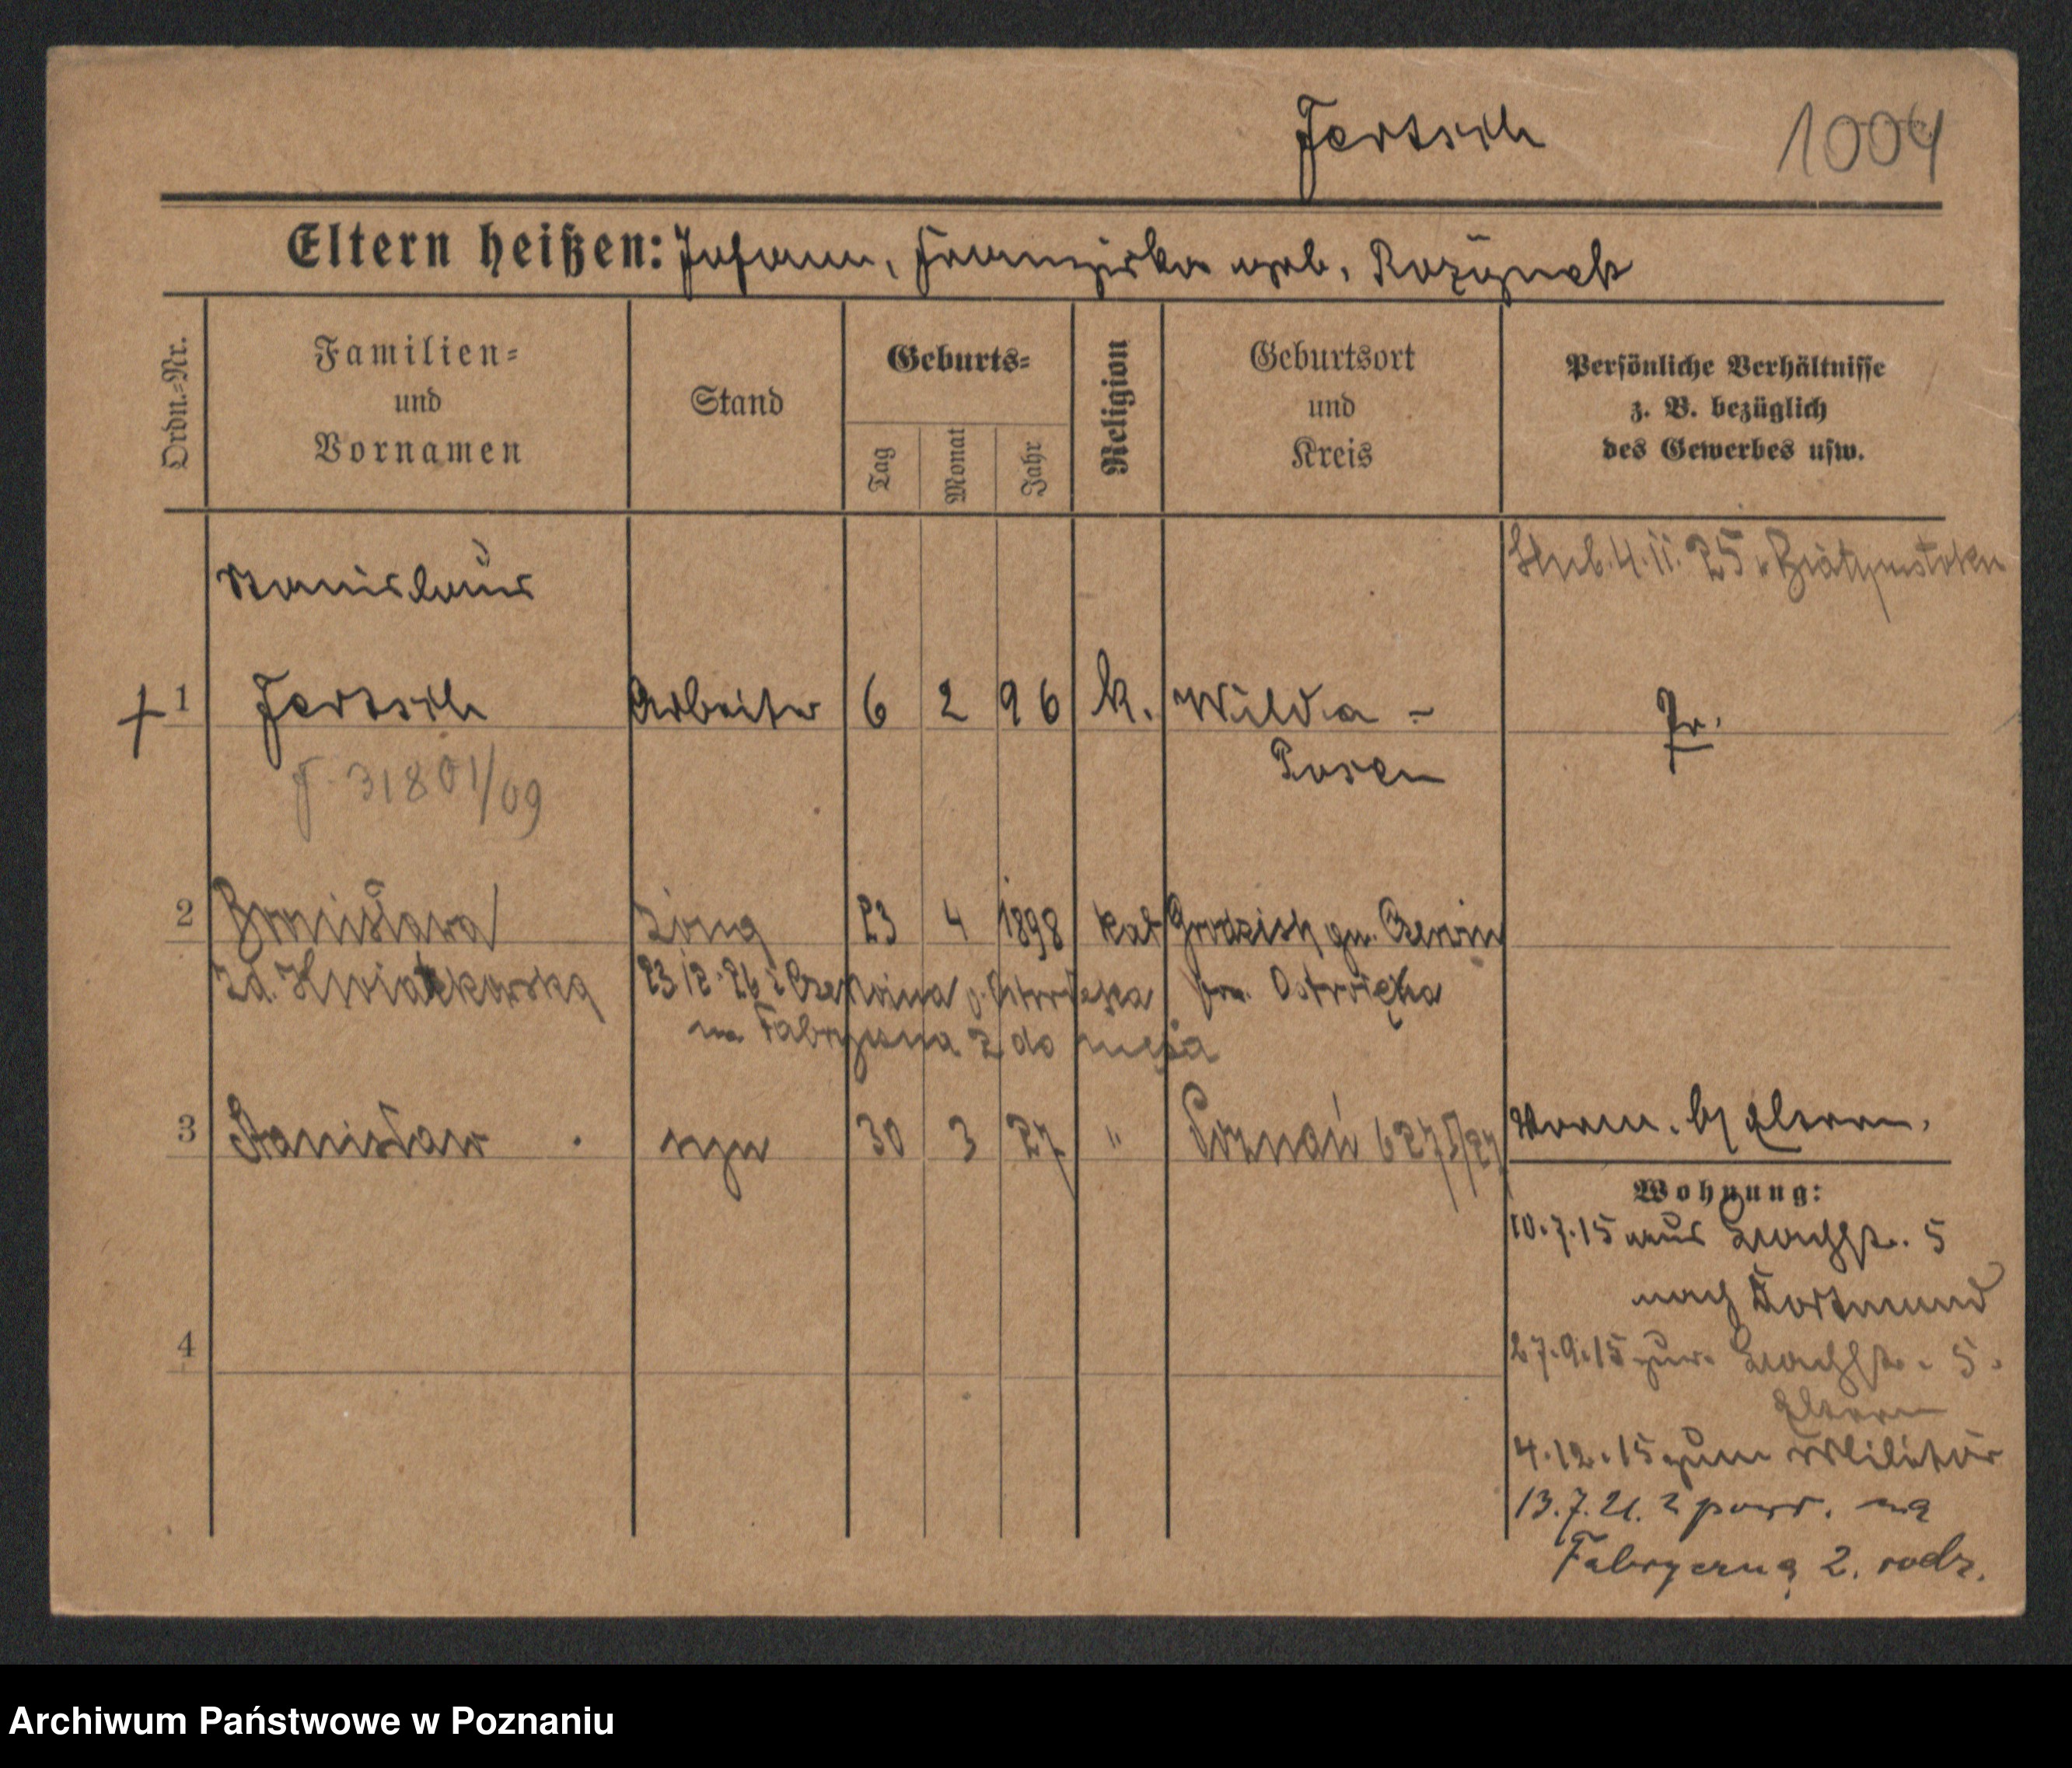 Jertsch 1004
Eltern heißen: Johann, Franziska geb. Rozynek
Ordn.-Nr.
Familien-
und
Vornamen
Stand
Geburts-
Tag
Monat
Jahr
Religion
Geburtsort
und
Kreis
Persönliche Verhältnisse
z. B. bezüglich
des Gewerbes usw.
4.11.25
Stanislaus
1 Jertsch Arbeiter 6 2 96 k. Wilda - Pr.
Posen
J. 31801/09
2 Bronisława żona 23 4 1898 kat Grodzisk gm. Czerwin
zd. Kwiatkowska 23/12.26 z Czerwina p. Ostrołęka pow. Ostrołęka
na Fabryczna 2 do męża
3 Stanisław syn 30 3 27 " Poznań 6275/27 Worm. b/ Eltern.
Wohnung:
10.7.15 aus Bachstr. 5
nach Dortmund
27.9.15 zur. Bachstr. 5.
Eltern
4
4.12.15 zum Militär
13.7.21. z powr. na
Fabryczną 2. rodz.
Archiwum Państwowe w Poznaniu